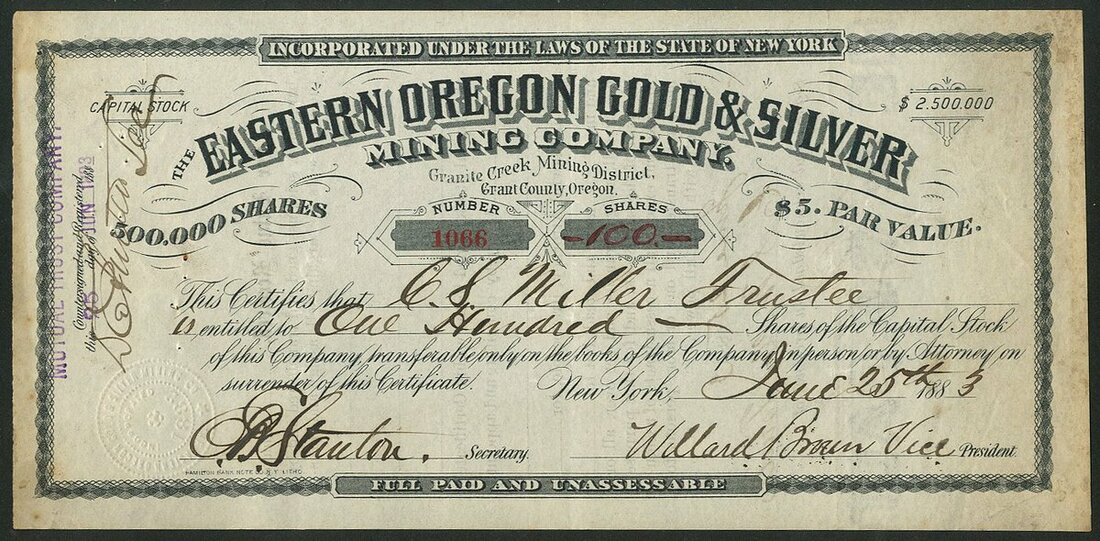 INCORPORATED UNDER THE LAWS OF THE STATE OF NEW YORK
CAPITAL STOCK
$ 2.500.000
THE EASTERN OREGON GOLD & SILVER
MINING COMPANY.
Granite Creek Mining District,
Grant County, Oregon.
500.000 SHARES
$5. PAR VALUE.
NUMBER
SHARES
1066
-100.-
This Certifies that C. S. Miller Trustee
is entitled to One Hundred — Shares of the Capital Stock
of this Company, transferable only on the books of the Company in person or by Attorney on
surrender of this Certificate. New York, June 25th 1883
Stanton. Secretary.
Willard Brown Vice President
HAMILTON BANK NOTE CO. N.Y. LITHO.
FULL PAID AND UNASSESSABLE
MUTUAL TRUST COMPANY,
Countersigned and Registered
this 25 day of JUN 1883